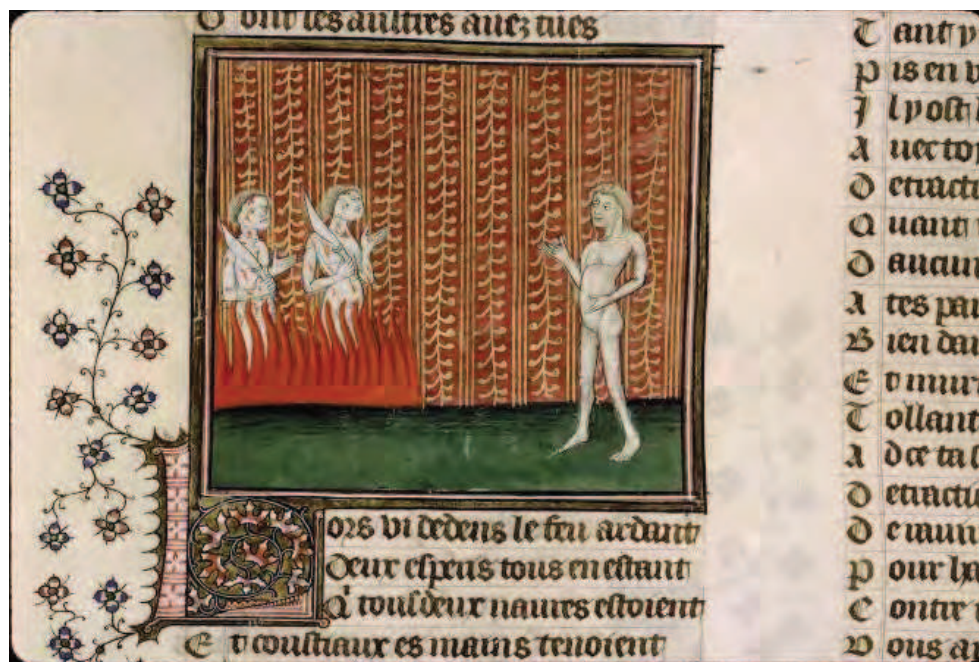 O ont les aultres auez tues
Lors vi dedens le feu ardant
Deux esperis tous en estant
Q' tous deux naures estoient
Et coustiaux es mains tenoient
T ant
P is en
I l y ost
A uec
D etract
Q uant
D aucun
A tes pa
B ien
E t
T ollant
A d ce tal
D etract
D e
P our
C ontre
V ous